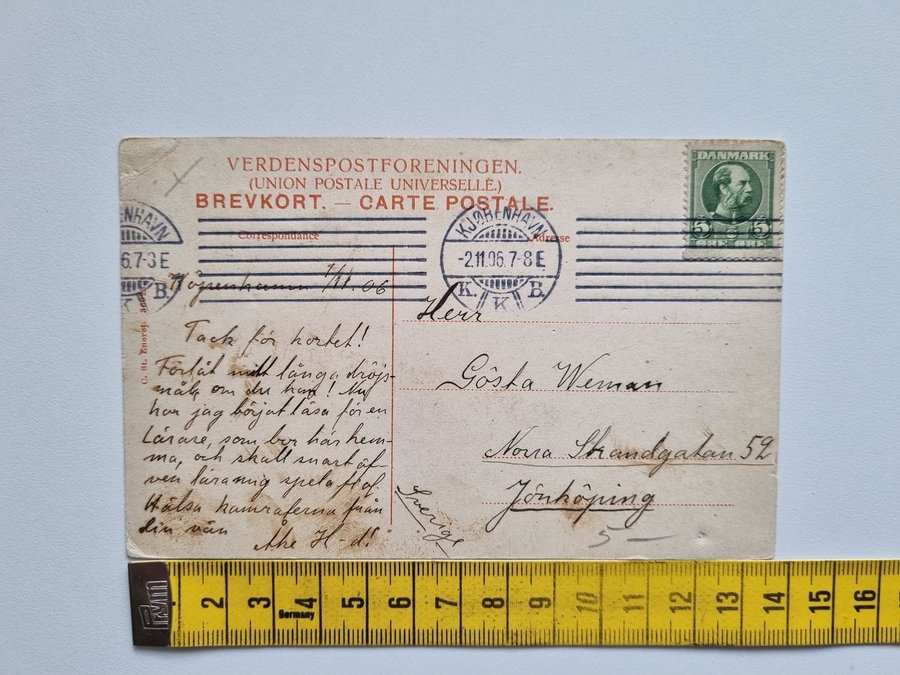 VERDENSPOSTFORENINGEN.
(UNION POSTALE UNIVERSELLE.)
BREVKORT. — CARTE POSTALE.
DANMARK
5 5
ØRE ØRE
Correspondance
Adresse
KJØBENHAVN
-2.11.06.7-8 E
K. K B.
ENHAVN
6.7-8 E
K B.
Köpenhamn 1/11.06
Tack för kortet!
Förlåt mitt långa dröjs-
mål, om du kan! Nu
har jag börjat läsa för en
Lärare, som bor här hem-
ma, och skall snart äf-
ven lära mig spela fiol.
Hälsa kamraterna från
din vän
Åke H-d!
Herr
Gösta Weman
Norra Strandgatan 52
Jönköping
Sverige
5 —
C. St. Eneret.
1 2 3 4 5 6 7 8 9 10 11 12 13 14 15 16
Germany